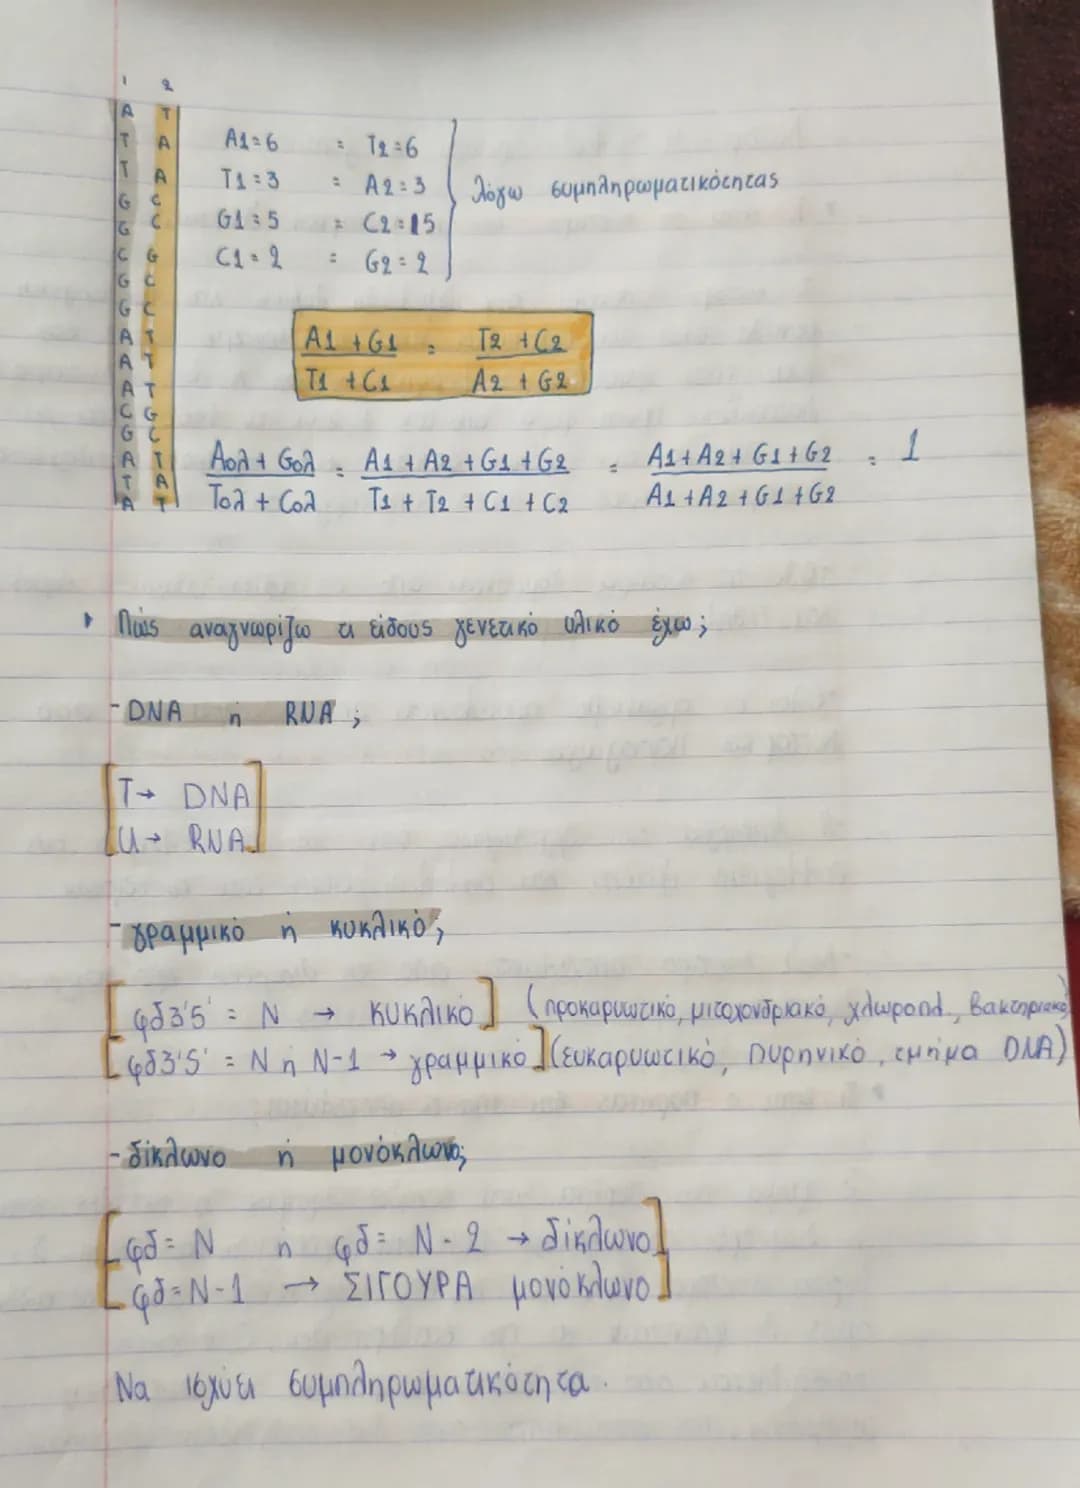 1 2
A T
T A
T A
G C
G C
C G
G C
G C
A T
A T
A T
C G
G C
A T
T A
A T
A1=6 = T2=6
T1=3 = A2=3
G1=5 = C2=15
C1=2 = G2=2
λόγω συμπληρωματικότητας
A1+G1 = T2+C2
T1+C1 A2+G2
Aολ+Gολ = A1+A2+G1+G2 = A1+A2+G1+G2 = 1
Tολ+Cολ T1+T2+C1+C2 A1+A2+G1+G2
Πώς αναγνωρίζω τι είδους γενετικό υλικό έχω;
- DNA ή RNA;
[T→ DNA]
[U→ RNA]
- γραμμικό ή κυκλικό;
[φδ3'5' = N → κυκλικό] (προκαρυωτικό, μιτοχονδριακό, χλωροπλ., βακτηριακό)
[φδ3'5' = N ή N-1 → γραμμικό] (ευκαρυωτικό, πυρηνικό, τμήμα DNA)
- δίκλωνο ή μονόκλωνο;
[φδ= N ή φδ= N-2 → δίκλωνο]
[φδ=N-1 → ΣΙΓΟΥΡΑ μονόκλωνο]
Να ισχύει συμπληρωματικότητα.